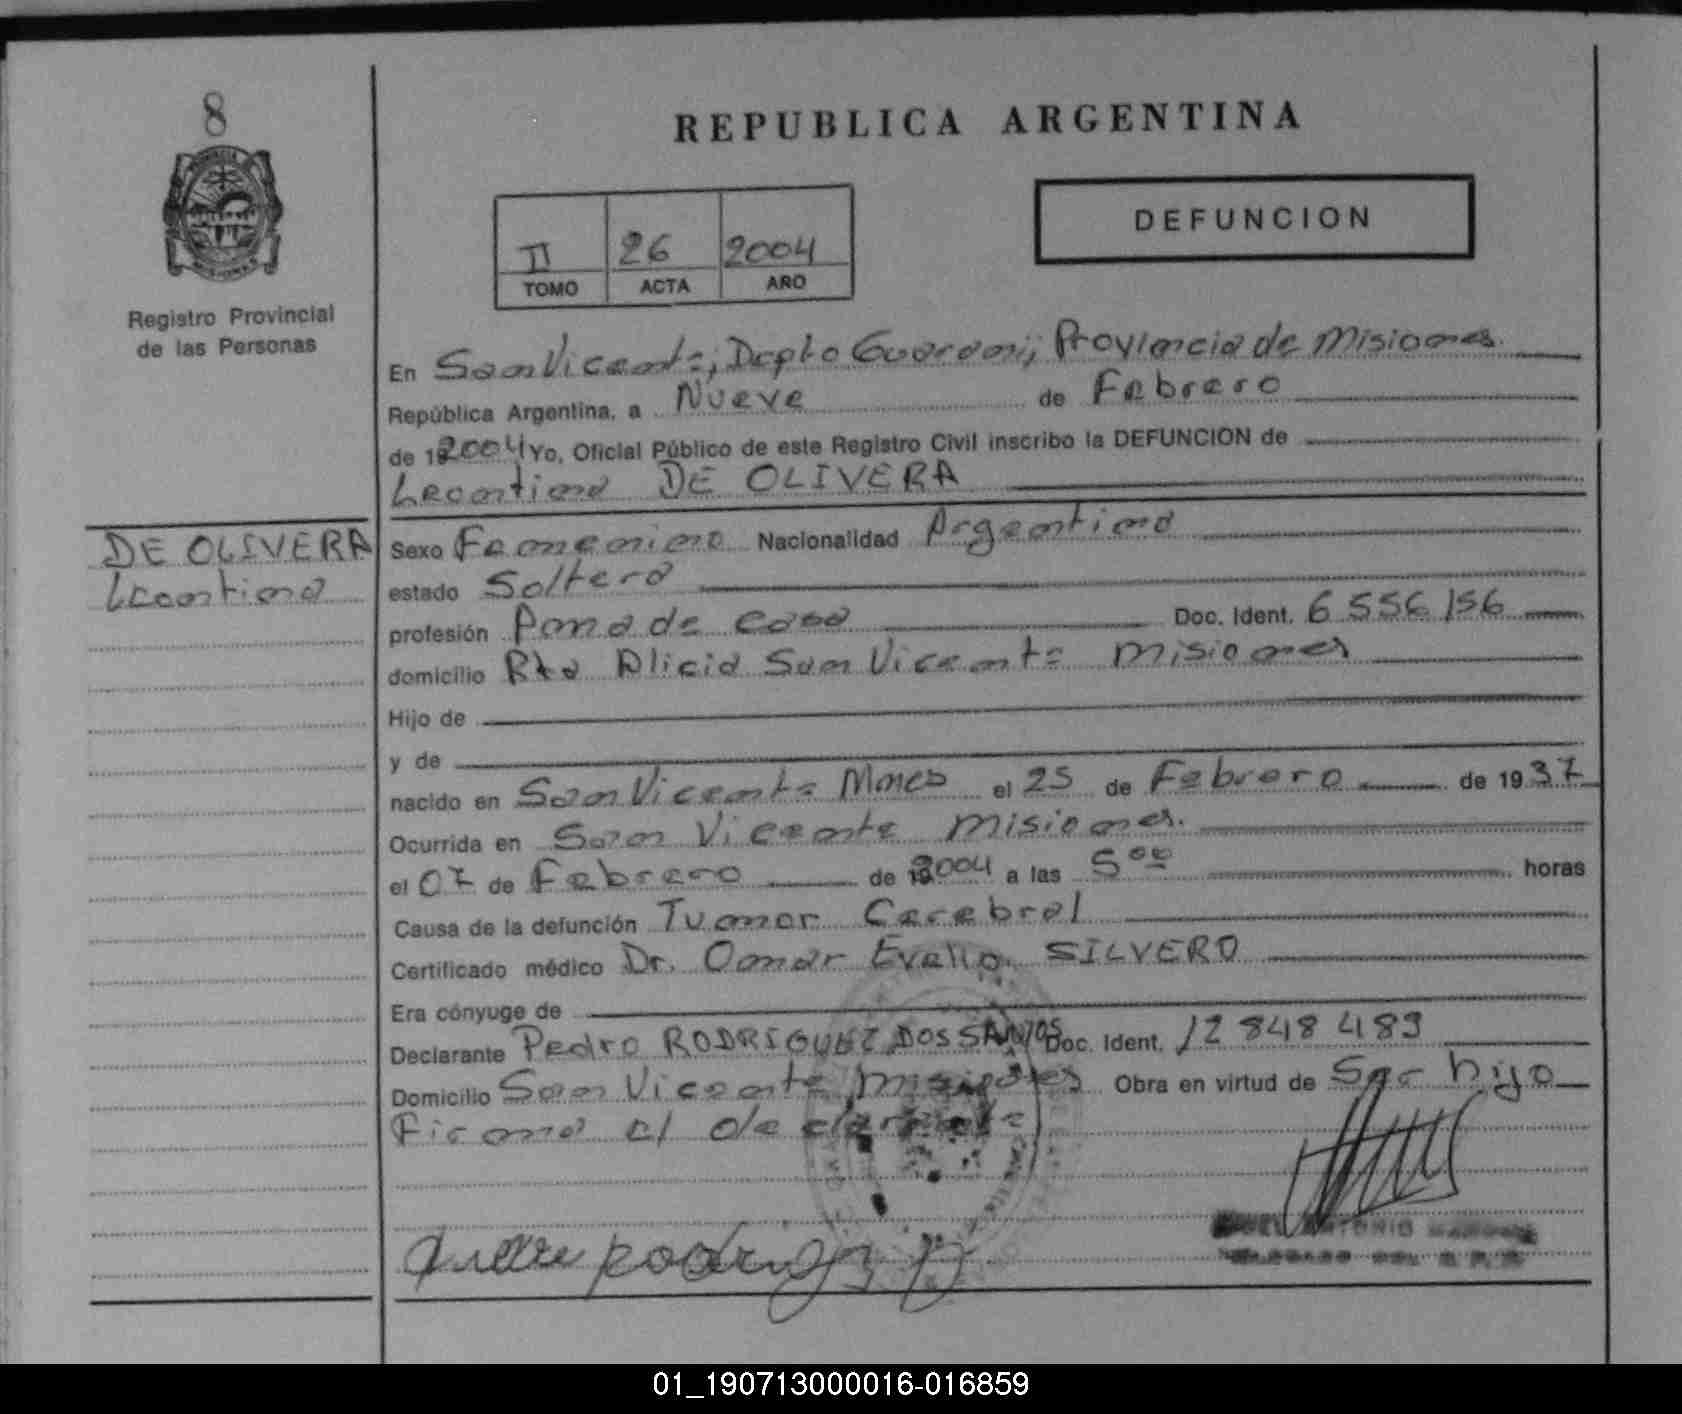 8
REPUBLICA ARGENTINA
DEFUNCION
II 26 2004
TOMO ACTA AÑO
Registro Provincial
de las Personas
En San Vicente, Depto Guarani, Provincia de Misiones.
República Argentina, a Nueve de Febrero
de 19 2004 Yo, Oficial Público de este Registro Civil inscribo la DEFUNCION de
Leontina DE OLIVERA
DE OLIVERA
Leontina
Sexo Femenino Nacionalidad Argentina
estado Soltera
profesión Ama de casa Doc. Ident. 6 556 156
domicilio Rta Alicia San Vicente Misiones
Hijo de
y de
nacido en San Vicente Mnes el 25 de Febrero de 1937
Ocurrida en San Vicente Misiones.
el 07 de Febrero de 2004 a las 5 00 horas
Causa de la defunción Tumor Cerebral
Certificado médico Dr. Omar SILVERO
Era cónyuge de
Declarante Pedro RODRIGUEZ DOS SANTOS Doc. Ident. 12 848 483
Domicilio San Vicente Misiones Obra en virtud de Ser hijo
Firma el declarante
01_190713000016-016859